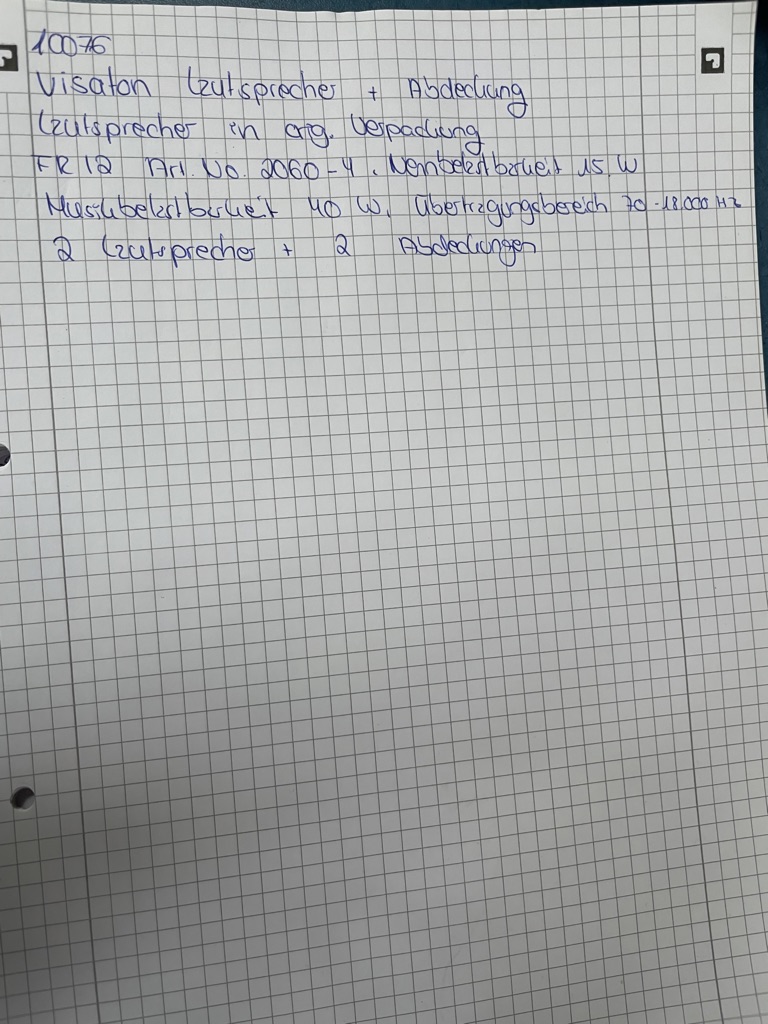 10076
Visaton Lautsprecher + Abdeckung
Lautsprecher in org. Verpackung
FR 12 Art. No. 2060-4. Nennbelastbarkeit 15 W
Musikbelastbarkeit 40 W, Übertragungsbereich 70-18.000 Hz
2 Lautsprecher + 2 Abdeckungen